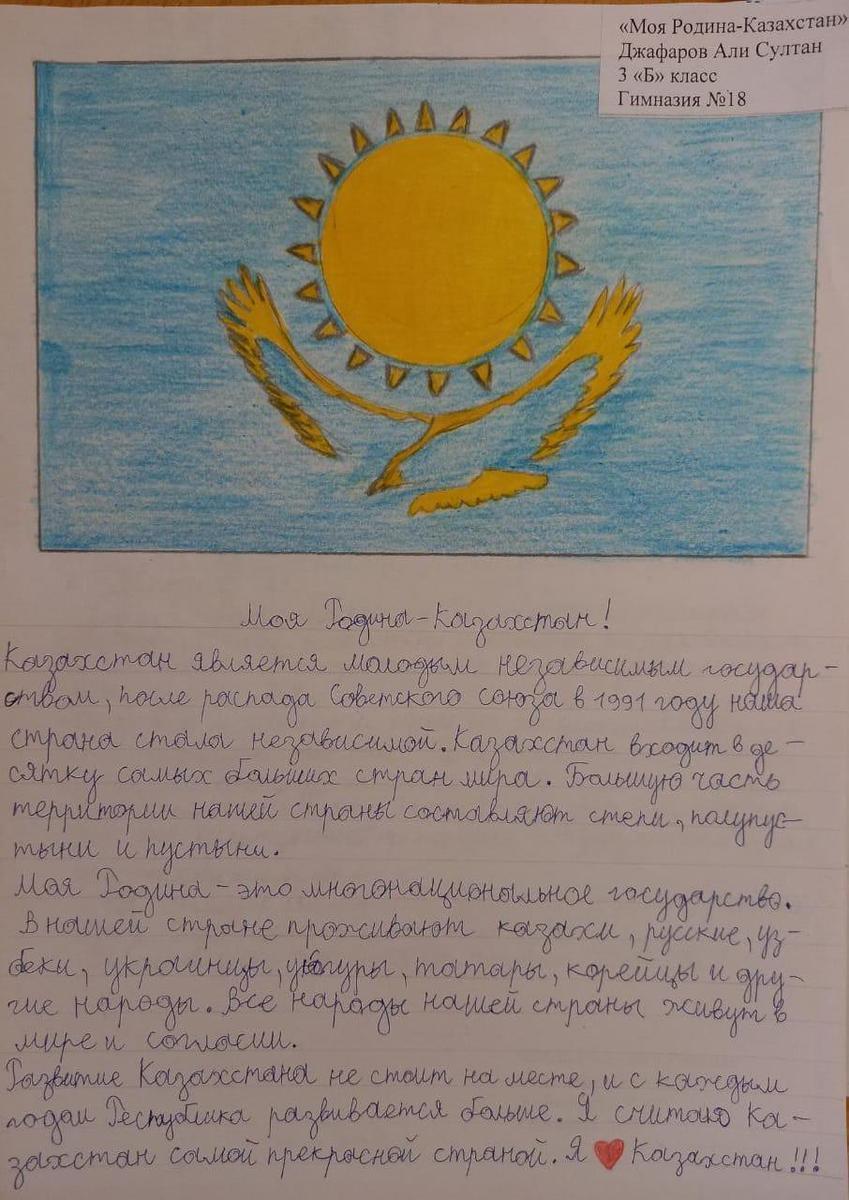 «Моя Родина-Казахстан»
Джафаров Али Султан
3 «Б» класс
Гимназия №18
Моя Родина-Казахстан!
Казахстан является молодым независимым государ-
ством, после распада Советского союза в 1991 году наша
страна стала независимой. Казахстан входит в де-
сятку самых больших стран мира. Большую часть
территории нашей страны составляют степи, полупус-
тыни и пустыни.
Моя Родина - это многонациональное государство.
В нашей стране проживают казахи, русские, уз-
беки, украинцы, уйгуры, татары, корейцы и дру-
гие народы. Все народы нашей страны живут в
мире и согласии.
Развитие Казахстана не стоит на месте, и с каждым
годам Республика развивается больше. Я считаю Ка-
захстан самой прекрасной страной. Я ❤ Казахстан!!!